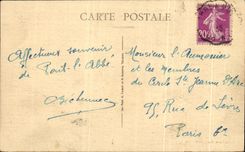 CARTE POSTALE
Affectueux souvenir
de Pont-l'Abbé
Monsieur l'Aumonier
et les Membres
du Cercle Ste Jeanne d'Arc
95, Rue de Sèvres
Paris 6e
20